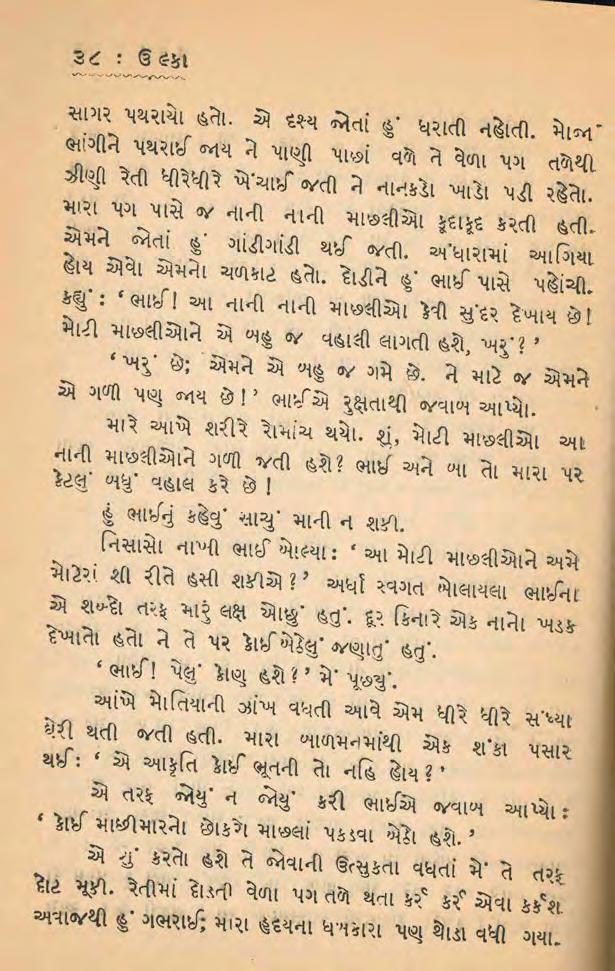 ૩૮ : ઉલ્કા
સાગર પથરાયો હતો. એ દૃશ્ય જોતાં હું ધરાતી નહોતી. મોજાં
ભાંગીને પથરાઈ જાય ને પાણી પાછાં વળે તે વેળા પગ તળેથી
ઝીણી રેતી ધીરેધીરે ખેંચાઈ જતી ને નાનકડો ખાડો પડી રહેતો.
મારા પગ પાસે જ નાની નાની માછલીઓ કૂદાકૂદ કરતી હતી.
એમને જોતાં હું ગાંડીગાંડી થઈ જતી. અંધારામાં આગિયા
હોય એવો એમનો ચળકાટ હતો. દોડીને હું ભાઈ પાસે પહોંચી.
કહ્યું : ‘ ભાઈ! આ નાની નાની માછલીઓ કેવી સુંદર દેખાય છે!
મોટી માછલીઓને એ બહુ જ વહાલી લાગતી હશે, ખરું ? ’
‘ ખરું છે; એમને એ બહુ જ ગમે છે. ને માટે જ એમને
એ ગળી પણ જાય છે ! ’ ભાઈએ રુક્ષતાથી જવાબ આપ્યો.
મારે આખે શરીરે રોમાંચ થયો. શું, મોટી માછલીઓ આ
નાની માછલીઓને ગળી જતી હશે? ભાઈ અને બા તો મારા પર
કેટલું બધું વહાલ કરે છે !
હું ભાઈનું કહેવું સાચું માની ન શકી.
નિસાસો નાખી ભાઈ બોલ્યા : ‘ આ મોટી માછલીઓને અમે
મોટેરાં શી રીતે હસી શકીએ ? ’ અર્ધા સ્વગત બોલાયલા ભાઈના
એ શબ્દો તરફ મારું લક્ષ ઓછું હતું. દૂર કિનારે એક નાનો ખડક
દેખાતો હતો ને તે પર કોઈ બેઠેલું જણાતું હતું.
‘ ભાઈ! પેલું કોણ હશે ? ’ મેં પૂછ્યું.
આંખે મોતિયાની ઝાંખ વધતી આવે એમ ધીરે ધીરે સંધ્યા
ઘેરી થતી જતી હતી. મારા બાળમનમાંથી એક શંકા પસાર
થઈ : ‘ એ આકૃતિ કોઈ ભૂતની તો નહિ હોય ? ’
એ તરફ જોયું ન જોયું કરી ભાઈએ જવાબ આપ્યો :
‘ કોઈ માછીમારનો છોકરો માછલાં પકડવા બેઠો હશે. ’
એ શું કરતો હશે તે જોવાની ઉત્સુકતા વધતાં મેં તે તરફ
દોટ મૂકી. રેતીમાં દોડતી વેળા પગ તળે થતા કર્ર્ કર્ર્ એવા કર્કશ
અવાજથી હું ગભરાઈ; મારા હૃદયના ધબકારા પણ થોડા વધી ગયા.